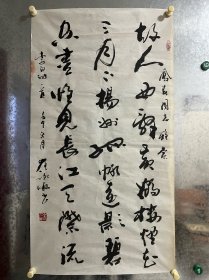 故人西辭黃鶴樓煙花
三月下揚州孤帆遠影碧
空盡唯見長江天際流
李白詩一首